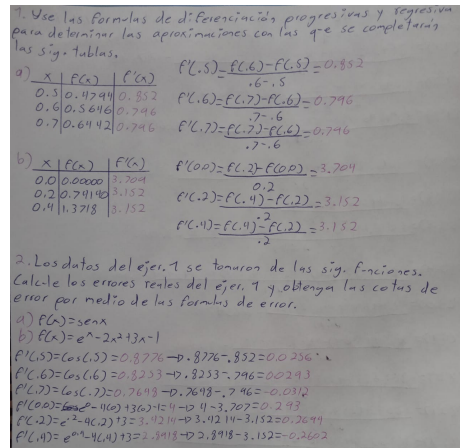 1. Use las formulas de diferenciación progresivas y regresivas
para determinar las aproximaciones con las que se completarán
las sig. tablas.
a) x | f(x) | f'(x)
0.5 | 0.4794 | 0.852
0.6 | 0.5646 | 0.796
0.7 | 0.6442 | 0.796
f'(.5)=f(.6)-f(.5)/.6-.5=0.852
f'(.6)=f(.7)-f(.6)/.7-.6=0.796
f'(.7)=f(.7)-f(.6)/.7-.6=0.796
b) x | f(x) | f'(x)
0.0 | 0.00000 | 3.704
0.2 | 0.74140 | 3.152
0.4 | 1.3718 | 3.152
f'(0.0)=f(.2)-f(0.0)/0.2=3.704
f'(.2)=f(.4)-f(.2)/.2=3.152
f'(.4)=f(.4)-f(.2)/.2=3.152
2. Los datos del ejer. 1 se tomaron de las sig. funciones.
Calcule los errores reales del ejer. 1 y obtenga las cotas de
error por medio de las formulas de error.
a) f(x)=senx
b) f(x)=e^x-2x²+3x-1
f'(.5)=cos(.5)=0.8776→.8776-.852=0.0256
f'(.6)=cos(.6)=0.8253→.8253-.796=0.0293
f'(.7)=cos(.7)=0.7648→.7648-.796=-0.0312
f'(0.0)=e⁰-4(0)+3=4→4-3.707=0.293
f'(.2)=e^.2-4(.2)+3=3.4214→3.4214-3.152=0.2694
f'(.4)=e^0.4-4(.4)+3=2.8918→2.8918-3.152=-0.2602